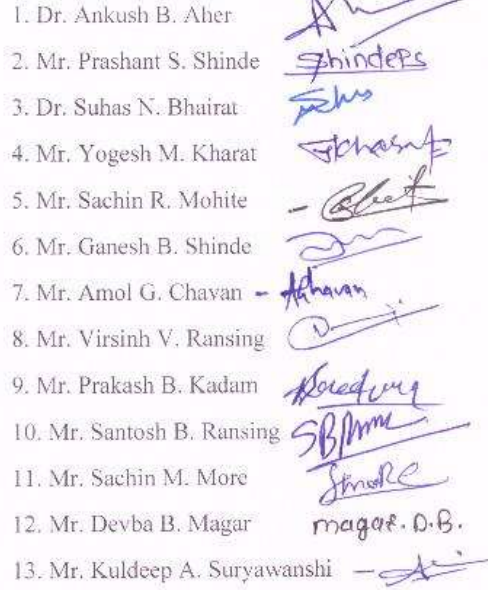 1. Dr. Ankush B. Aher
2. Mr. Prashant S. Shinde ShindePS
3. Dr. Suhas N. Bhairat
4. Mr. Yogesh M. Kharat
5. Mr. Sachin R. Mohite -
6. Mr. Ganesh B. Shinde
7. Mr. Amol G. Chavan -
8. Mr. Virsinh V. Ransing
9. Mr. Prakash B. Kadam
10. Mr. Santosh B. Ransing
11. Mr. Sachin M. More SMORE
12. Mr. Devba B. Magar magar. D.B.
13. Mr. Kuldeep A. Suryawanshi -